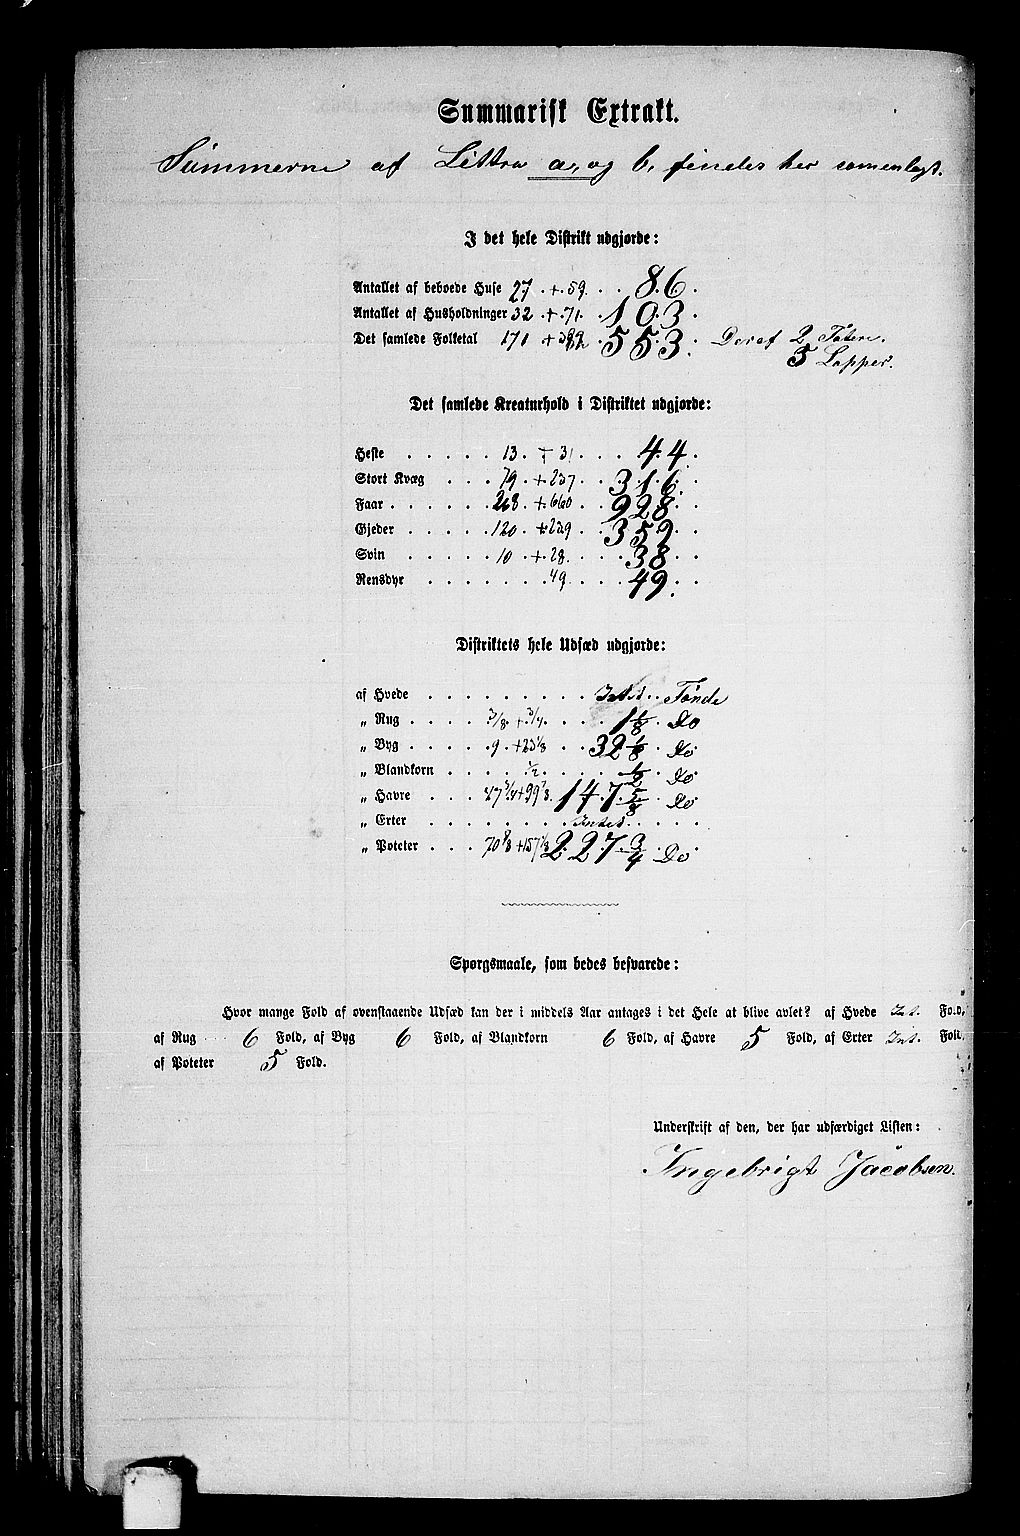 Summarisk Extrakt.
Summerne af Littra a, og b, findes her samenlagt.
I det hele Distrikt udgjorde:
Antallet af beboede Huse 27 + 59 . . 86.
Antallet af Husholdninger 32 + 71 . 103.
Det samlede Folketal 171 + 382 . 553. Deraf 2 Tatere.
5 Lapper.
Det samlede Kreaturhold i Distriktet udgjorde:
Heste . . . . . 13 + 31 . . . 44.
Stort Kvæg . . . 79 + 237 . . 316.
Faar . . . . . 268 + 660 . . 928.
Gjeder . . . . 120 + 239 . . 359.
Svin . . . . . 10 + 28 . . . 38
Rensdyr . . . . . . 49 . . . 49.
Distriktets hele Udsæd udgjorde:
af Hvede . . . . . . . . . Intet . . Tønde
„ Rug . . . . 3/8 + 3/4 . . . . 1 1/8 Do
„ Byg . . . . 9 + 23 1/8 . . . 32 1/8 Do
„ Blandkorn . . . . 1/2 . . . . 1/2 Do
„ Havre . . . 47 3/4 + 99 7/8 147 5/8 Do
„ Erter . . . . . . . . Intet . . . . .
„ Poteter . . . 70 + 157 227 3/4 Do
Spørgsmaale, som bedes besvarede:
Hvor mange Fold af ovenstaaende Udsæd kan der i middels Aar antages i det Hele at blive avlet? af Hvede Int. Fold,
af Rug 6 Fold, af Byg 6 Fold, af Blandkorn 6 Fold, af Havre 5 Fold, af Erter Int. Fold,
af Poteter 5 Fold.
Underskrift af den, der har udfærdiget Listen:
Ingebrigt Jacobsen.